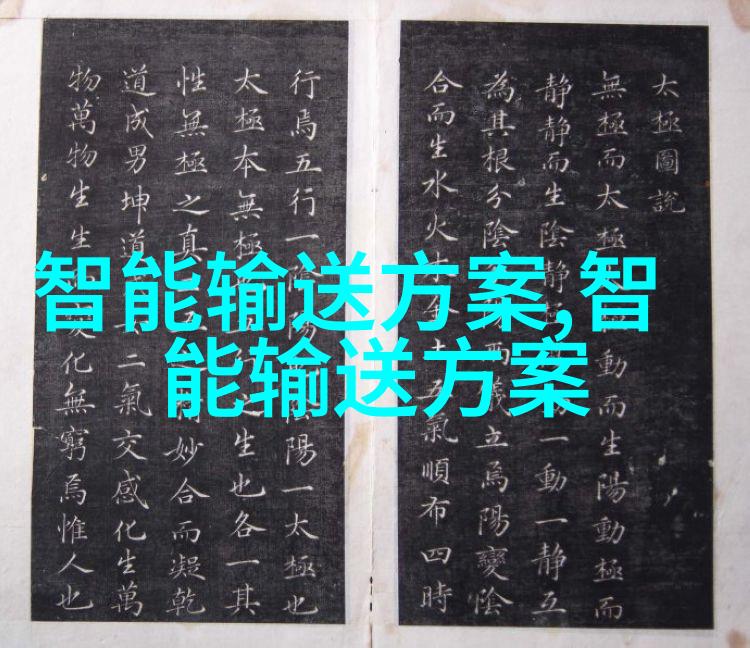 太極圖說
無極而太極動而生陽動極而
静静而生陰静極一動一静互
為其根分陰兩儀立焉陽變陰
合而生水火金土五氣順布四時
行焉五行一陰陽陰陽一太極也
太極本無極之生也各一其
性無極之真五妙合而凝乾
道成男坤道二氣交感化生萬
物萬物生生變化無窮焉惟人也
智能输送方案,智
能输送方案